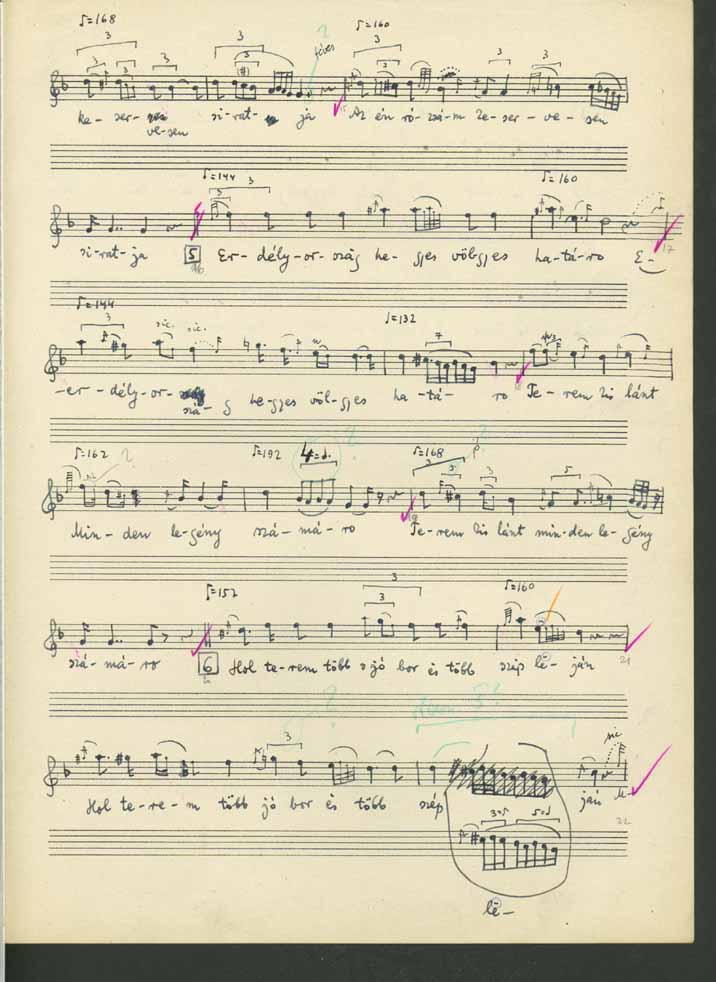 ♪=168 ♪=160
3 3 3 3 3 3 3 3 3 3
ke- ser- si-rat- ja Az én ró-zsám ke-ser-ve-sen
ve-sen
♪=144 ♪=160
3 3
si-rat-ja 5 Er-dély-or-szág he-gyes völ-gyes ha-tá-ro E-
16 17
♪=144 ♩=132
3 sic. sic. 7
-er-dély-or- he-gyes völ-gyes ha-tá-ro Te-rem kis lánt
szá-g
♪=162 ? ♪=192 4=♩. ? ♪=168 ?
3 5 3 5
Min-den le-gény szá-má-ro Te-rem kis lánt min-den le-gény
♪=152 3 ♪=160
3
szá-má-ro 6 Hol te-rem több s jó bor és több szép lē-ján
21
? 5?
3
Hol te-re-m több jó bor és több szép ján
22
3=♪ 5=♩
lē-